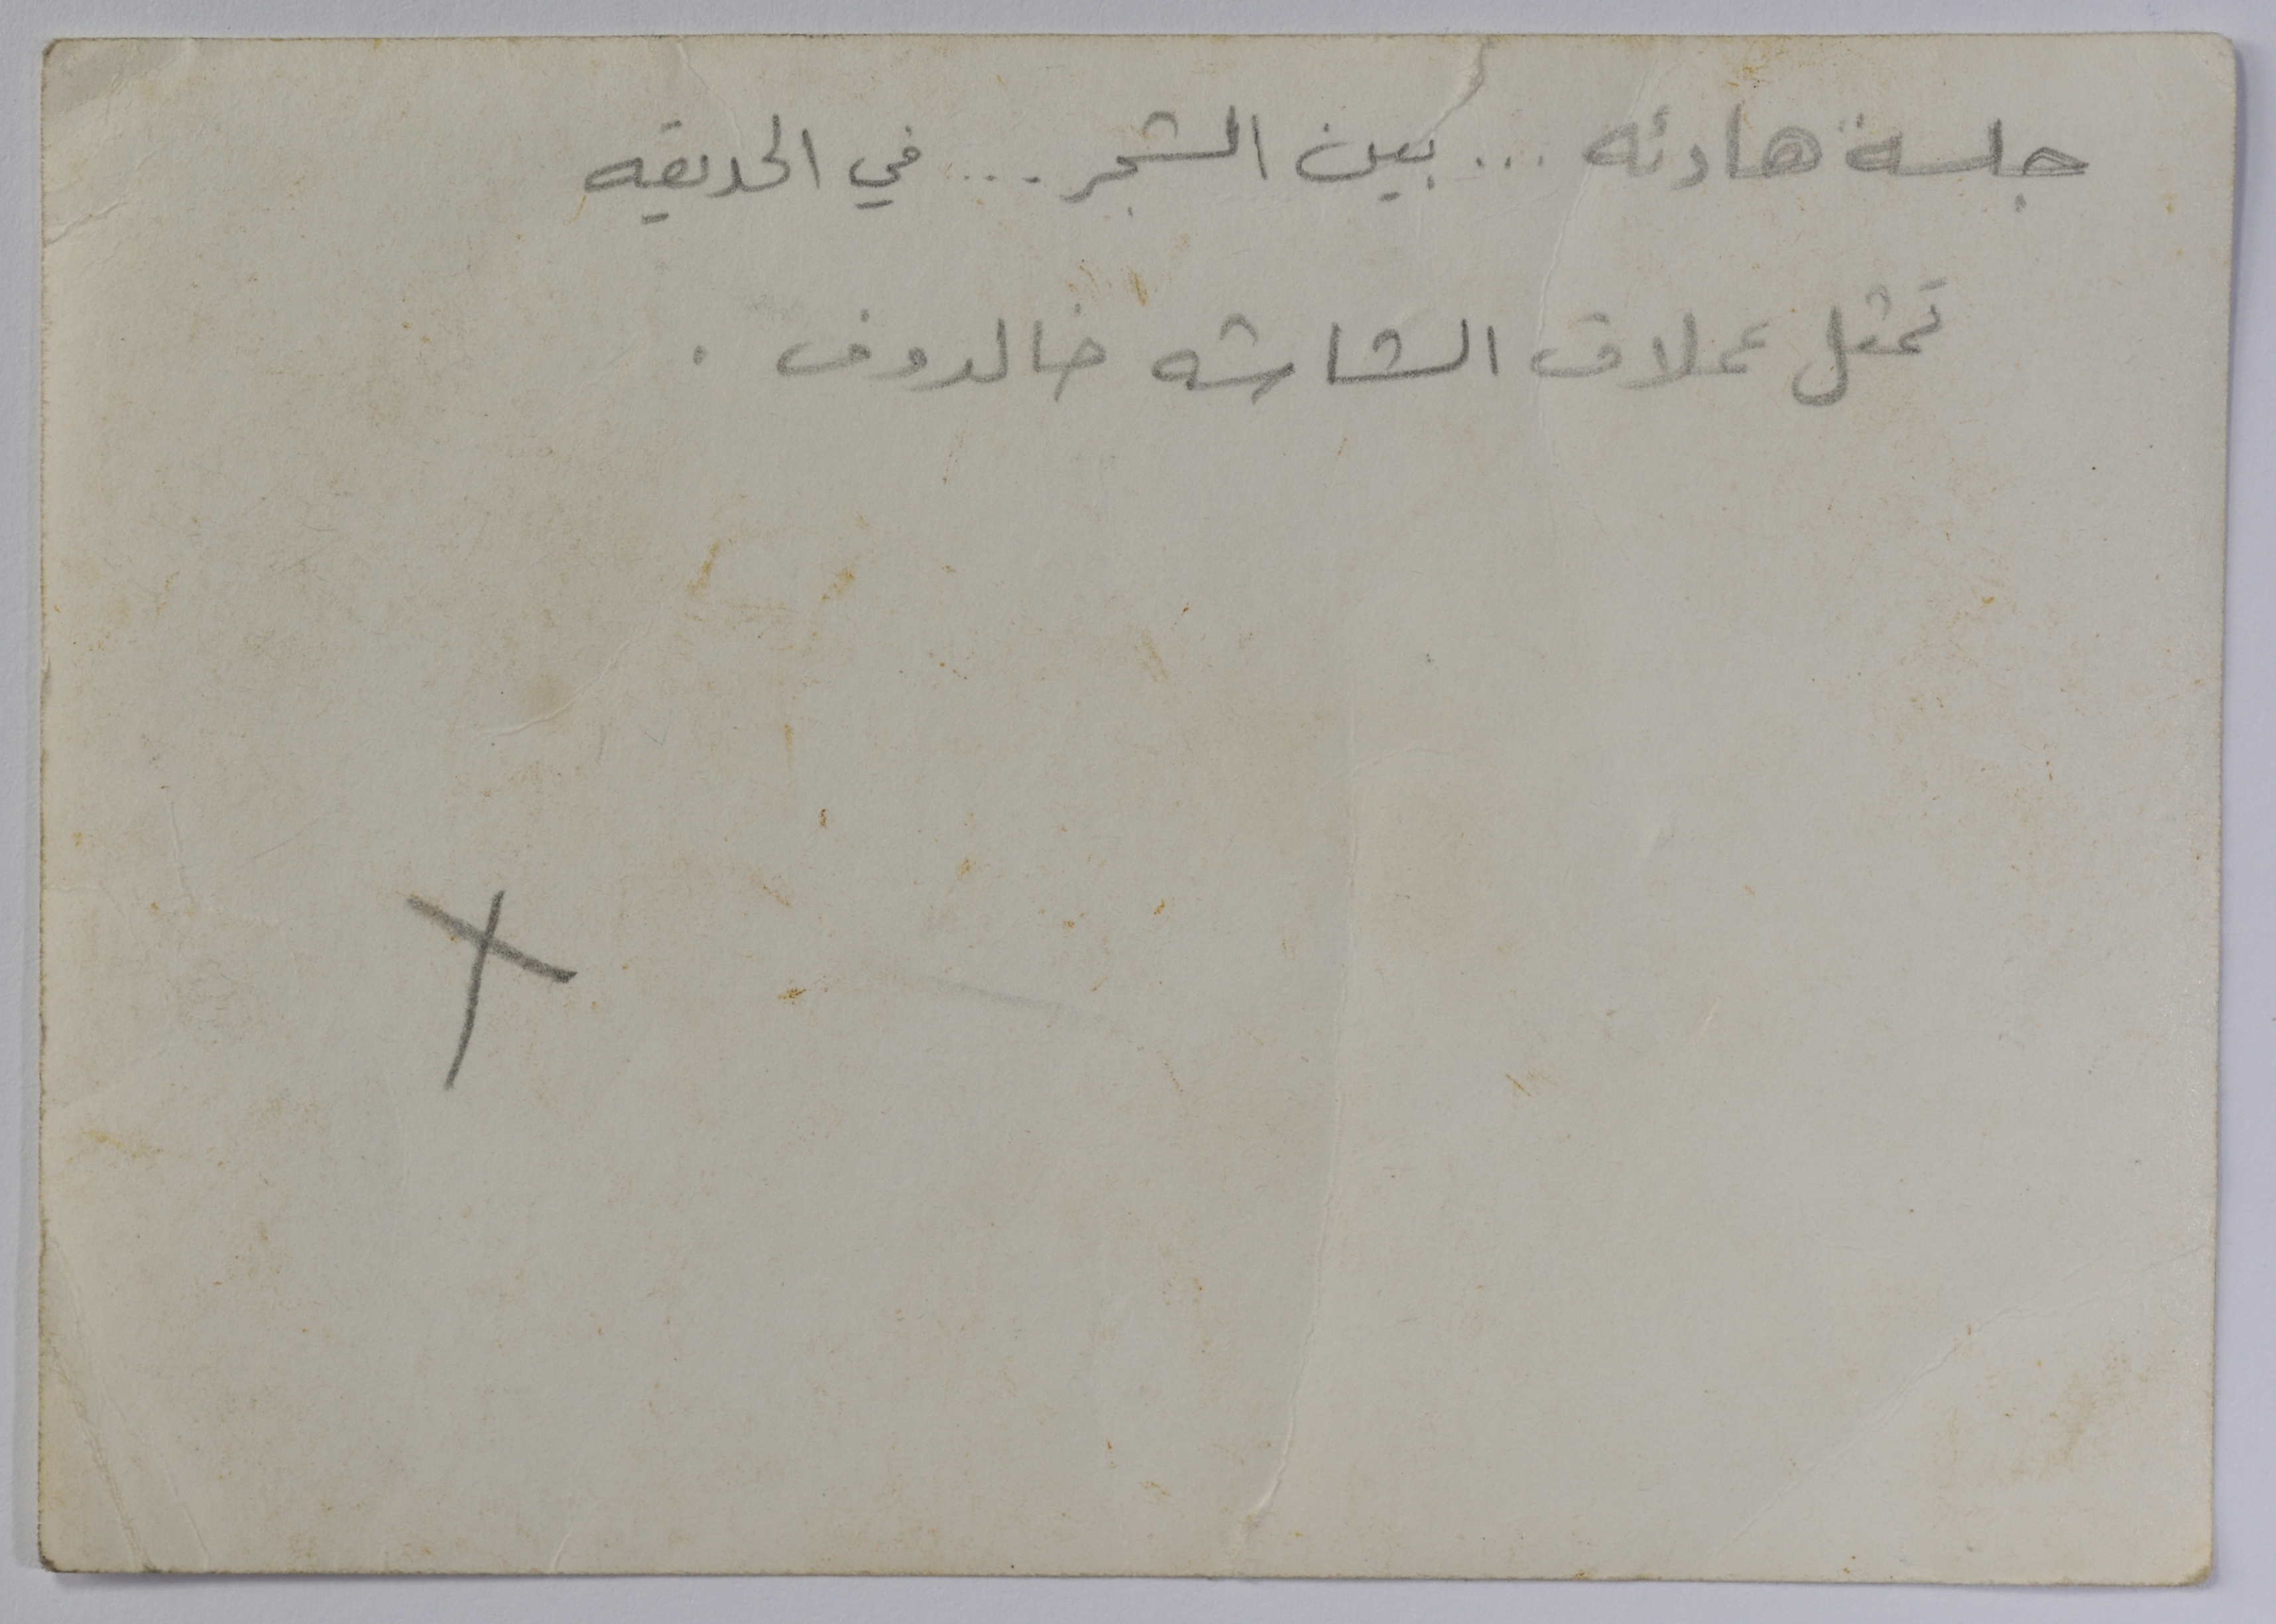 جلسة هادئه ... بين الشجر .... في الحديقه
تمثل عملاق الشاشه خالدوف .
X